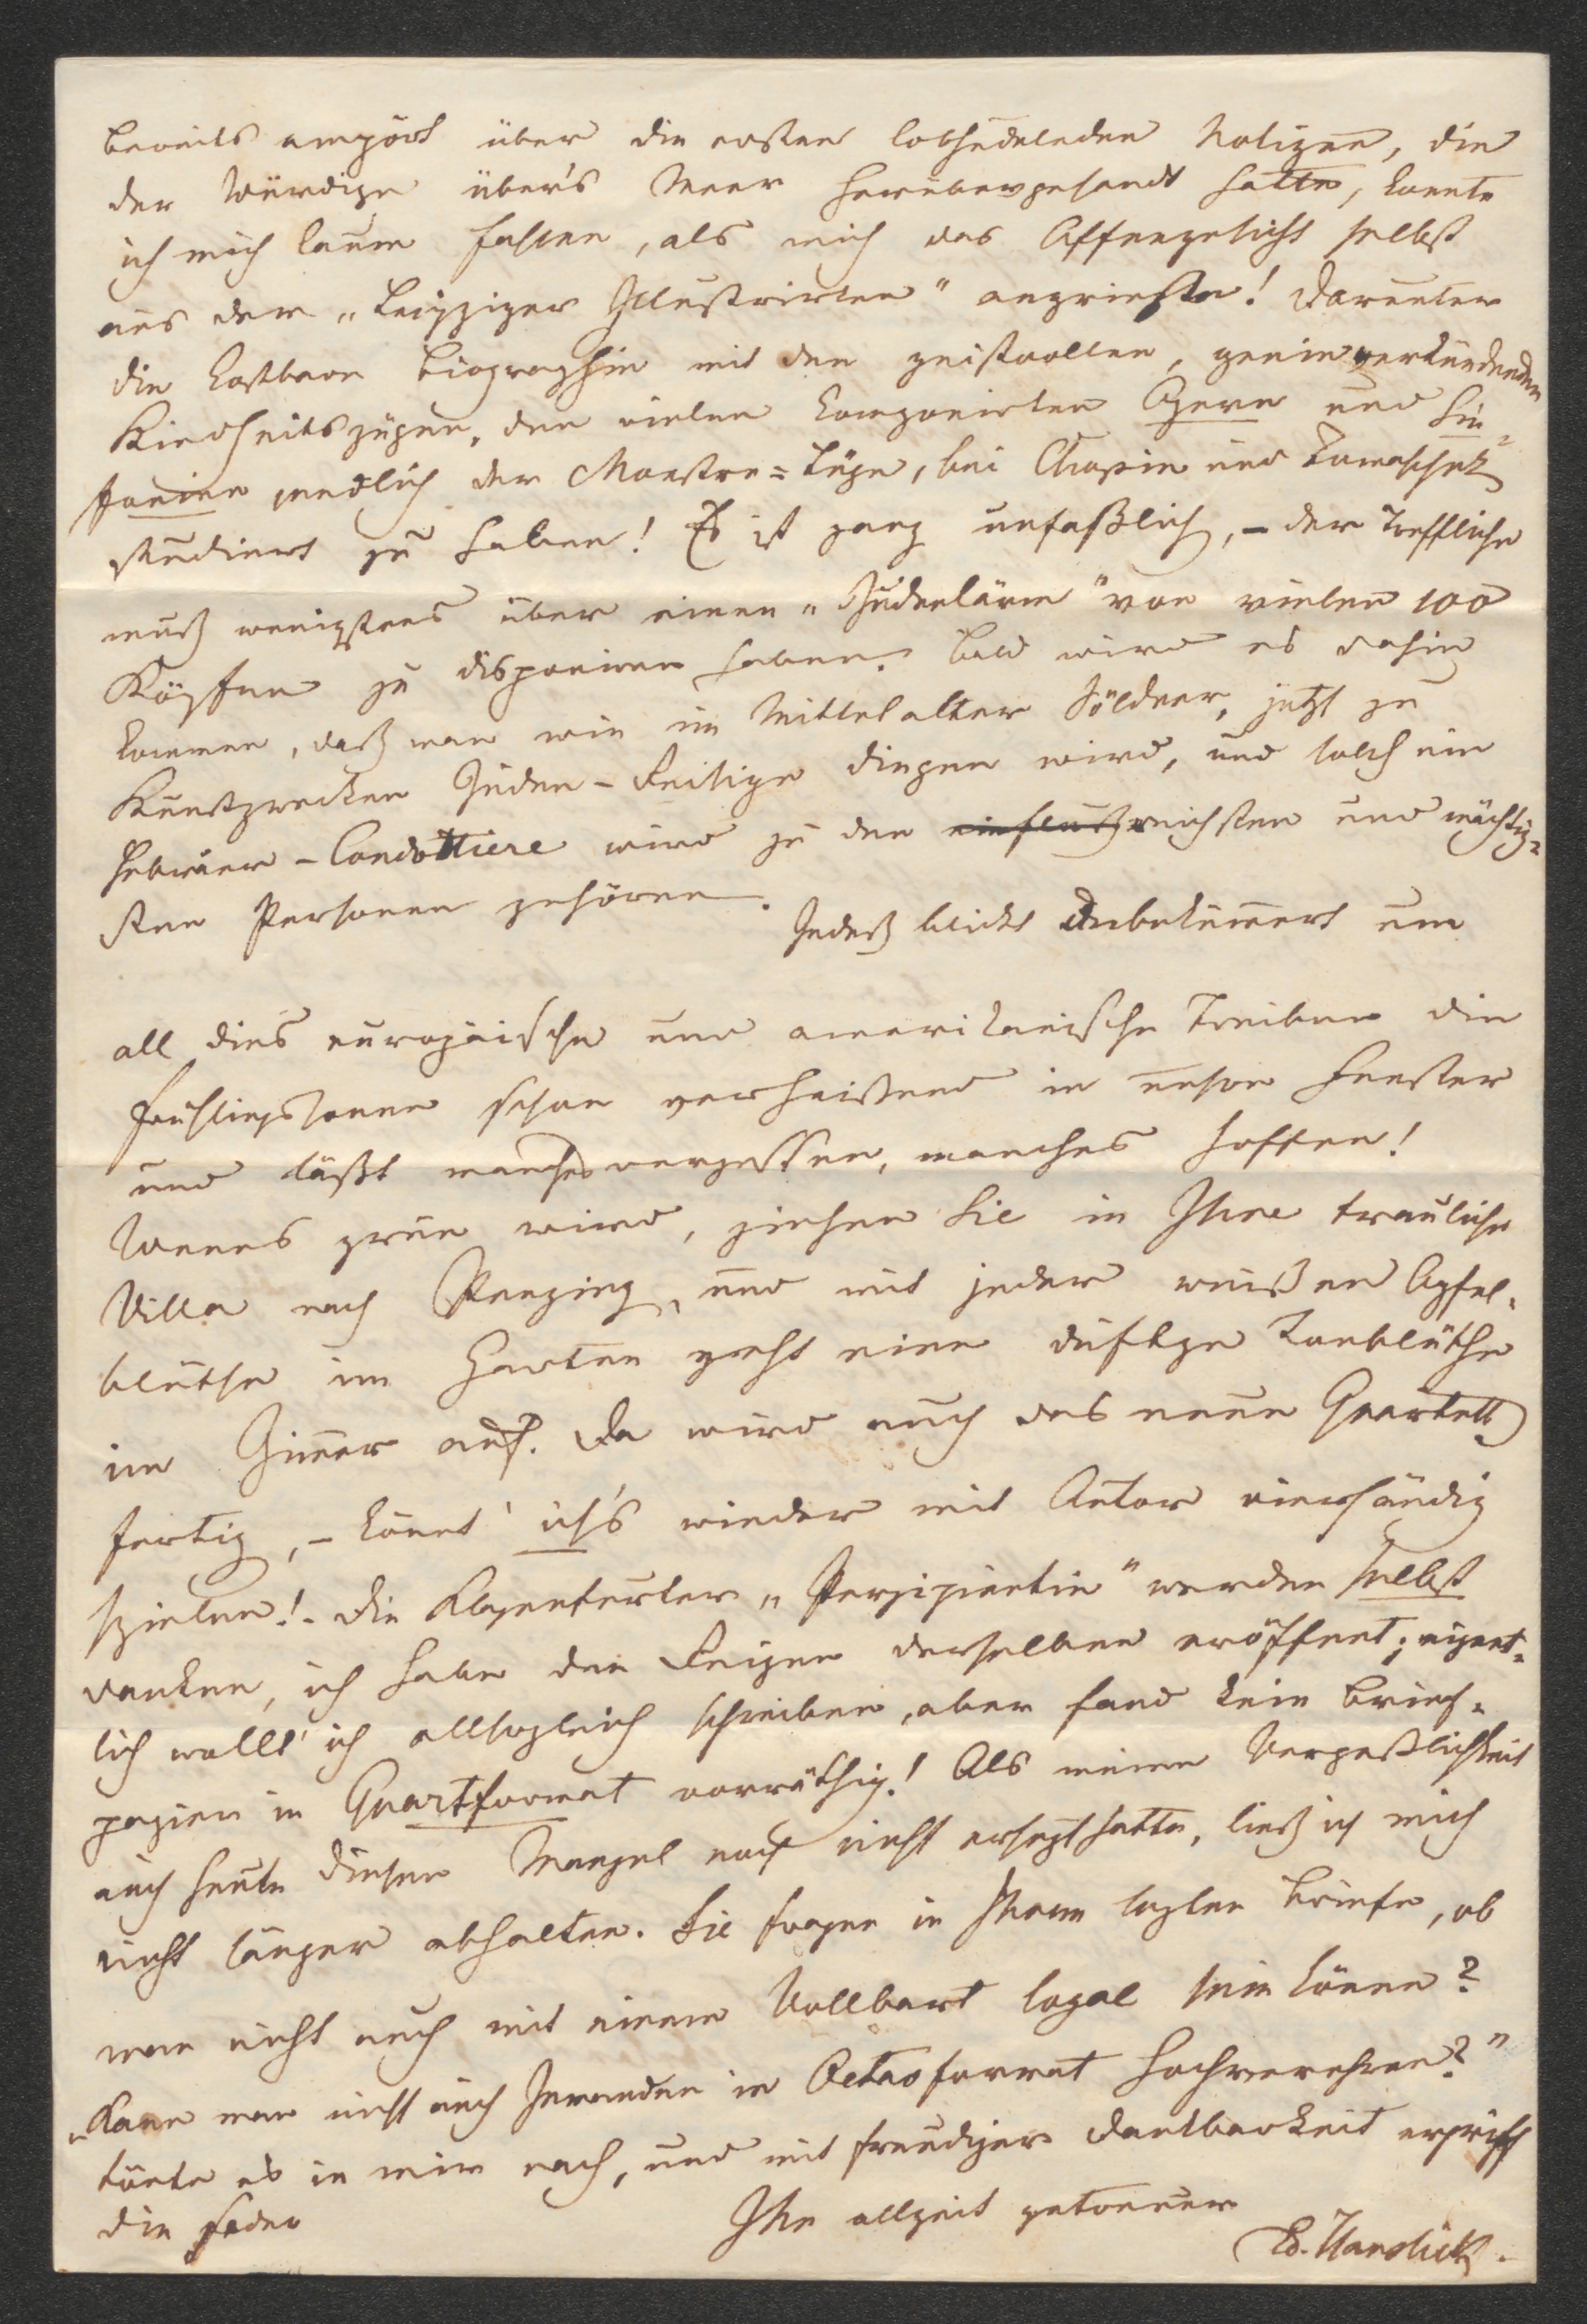 bereits empört über die ersten lobhudelnden Notizen, die
der Würdige über's Meer herübergesandt hatte, konnte
ich mich kaum fassen, als mich das Affengesicht selbst
aus der „Leipziger Illustrirten" angrinste! Darunter
die kostbare Biographie mit den geistvollen, genieverkündenden
Kindheitszügen, den vielen komponirten Opern und Sin-
fonien endlich der Monstre=Lüge, bei Chopin und Tomaschek
studiert zu haben! Es ist ganz unfaßlich, – der Treffliche
muß wenigstens über einen „Judenlärm" von vielen 100
Köpfen zu disponiren haben. Bald wird es dahin
kommen, daß man wie im Mittelalter Söldner, jetzt zu
Kunstzwecken Juden-Reisige dingen wird, und solch ein
Hebräer-Condottiere wird zu den einflußreichsten und mächtig-
sten Personen gehören.
Indeß blickt unbekümmert um
all dies europäische und amerikanische Treiben die
Frühlingssonne schon verheißend in unsre Fenster
und läßt manches vergessen, manches hoffen!
Wenns grün wird, ziehen Sie in Ihre trauliche
Villa nach Penzing, und mit jeder weißen Apfel-
blüthe im Garten geht eine duftge Tonblüthe
im Zimmer auf. Da wird auch das neue Quartett
fertig, – könnt' ich's wieder mit Autor vierhändig
spielen! – Die Klagenfurter „Perzipientin" werden selbst
danken, ich habe den Reigen derselben eröffnet; eigent-
lich wollt' ich allsogleich schreiben, aber fand kein Brief-
papier in Quartformat vorräthig! Als meine Vergeßlichkeit
auch heute diesen Mangel noch nicht ersezt hatte, ließ ich mich
nicht länger abhalten. Sie fragen in Ihrem lezten Briefe, ob
man nicht auch mit einem Vollbart loyal sein könne?
„Kann man nicht auch Jemanden in Octavformat hochverehren?"
tönte es in mir nach, und mit freudiger Dankbarkeit ergriff
die Feder
Ihr allzeit getreuer
Ed. Hanslick.